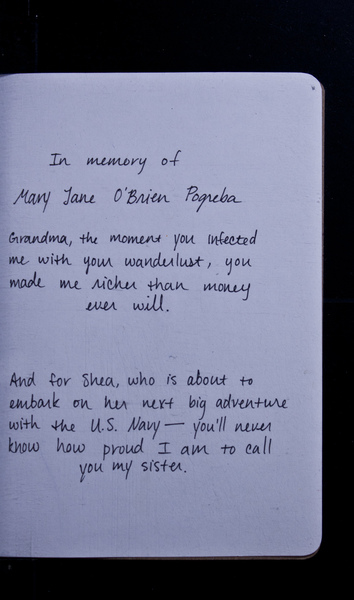 In memory of
Mary Jane O'Brien Pogreba
Grandma, the moment you infected
me with your wanderlust, you
made me richer than money
ever will.
And for Shea, who is about to
embark on her next big adventure
with the U.S. Navy — you'll never
know how proud I am to call
you my sister.